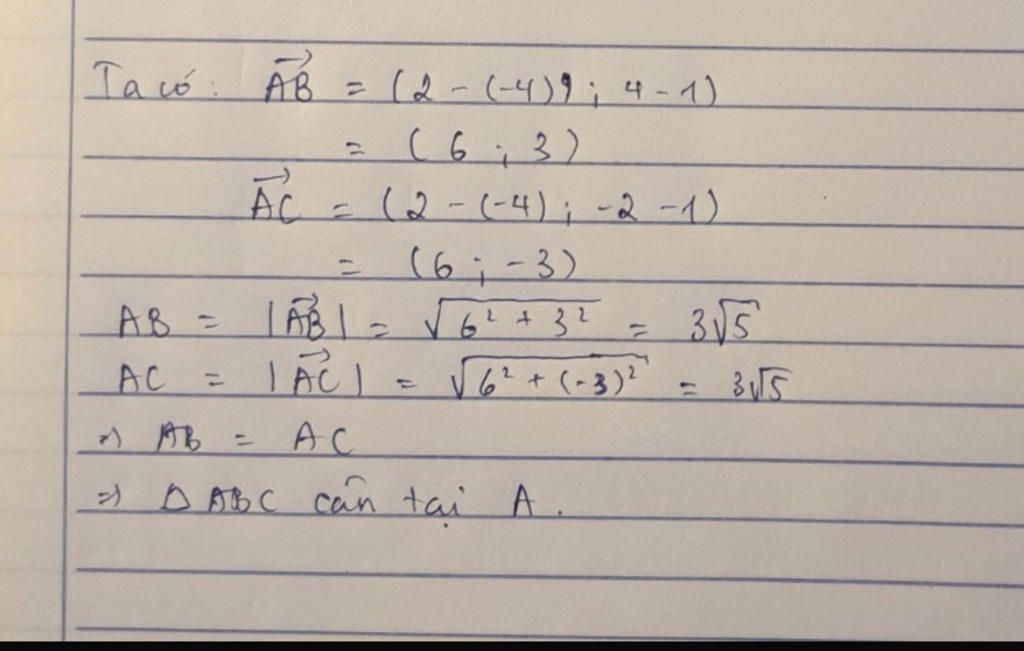 Ta có: \overrightarrow{AB} = (2 - (-4); 4 - 1)
= (6 ; 3)
\overrightarrow{AC} = (2 - (-4); -2 - 1)
= (6 ; -3)
AB = |\overrightarrow{AB}| = √(6² + 3²) = 3√5
AC = |\overrightarrow{AC}| = √(6² + (-3)²) = 3√5
=> AB = AC
=> Δ ABC cân tại A.